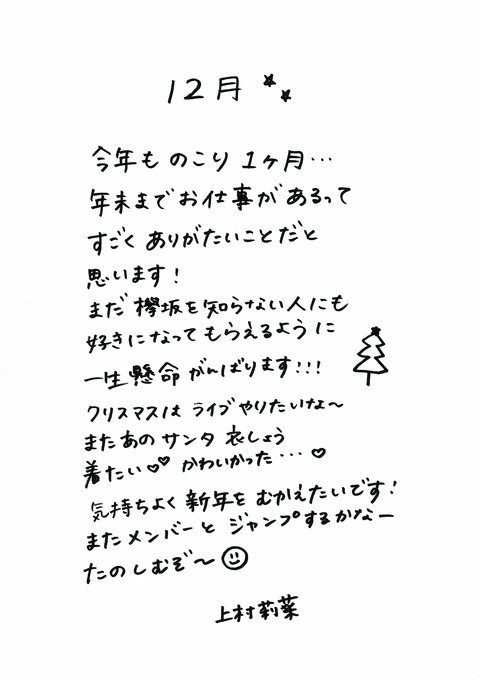 12月
今年も のこり 1ヶ月…
年末までお仕事があるって
すごく ありがたいことだと
思います!
まだ欅坂を知らない人にも
好きになってもらえるように
一生懸命がんばります!!!
クリスマスは ライブやりたいな〜
またあの サンタ 衣しょう
着たい♡♡ かわいかった… ♡
気持ちよく 新年を むかえたいです!
またメンバーと ジャンプするかなー
たのしむぞ〜
上村莉菜